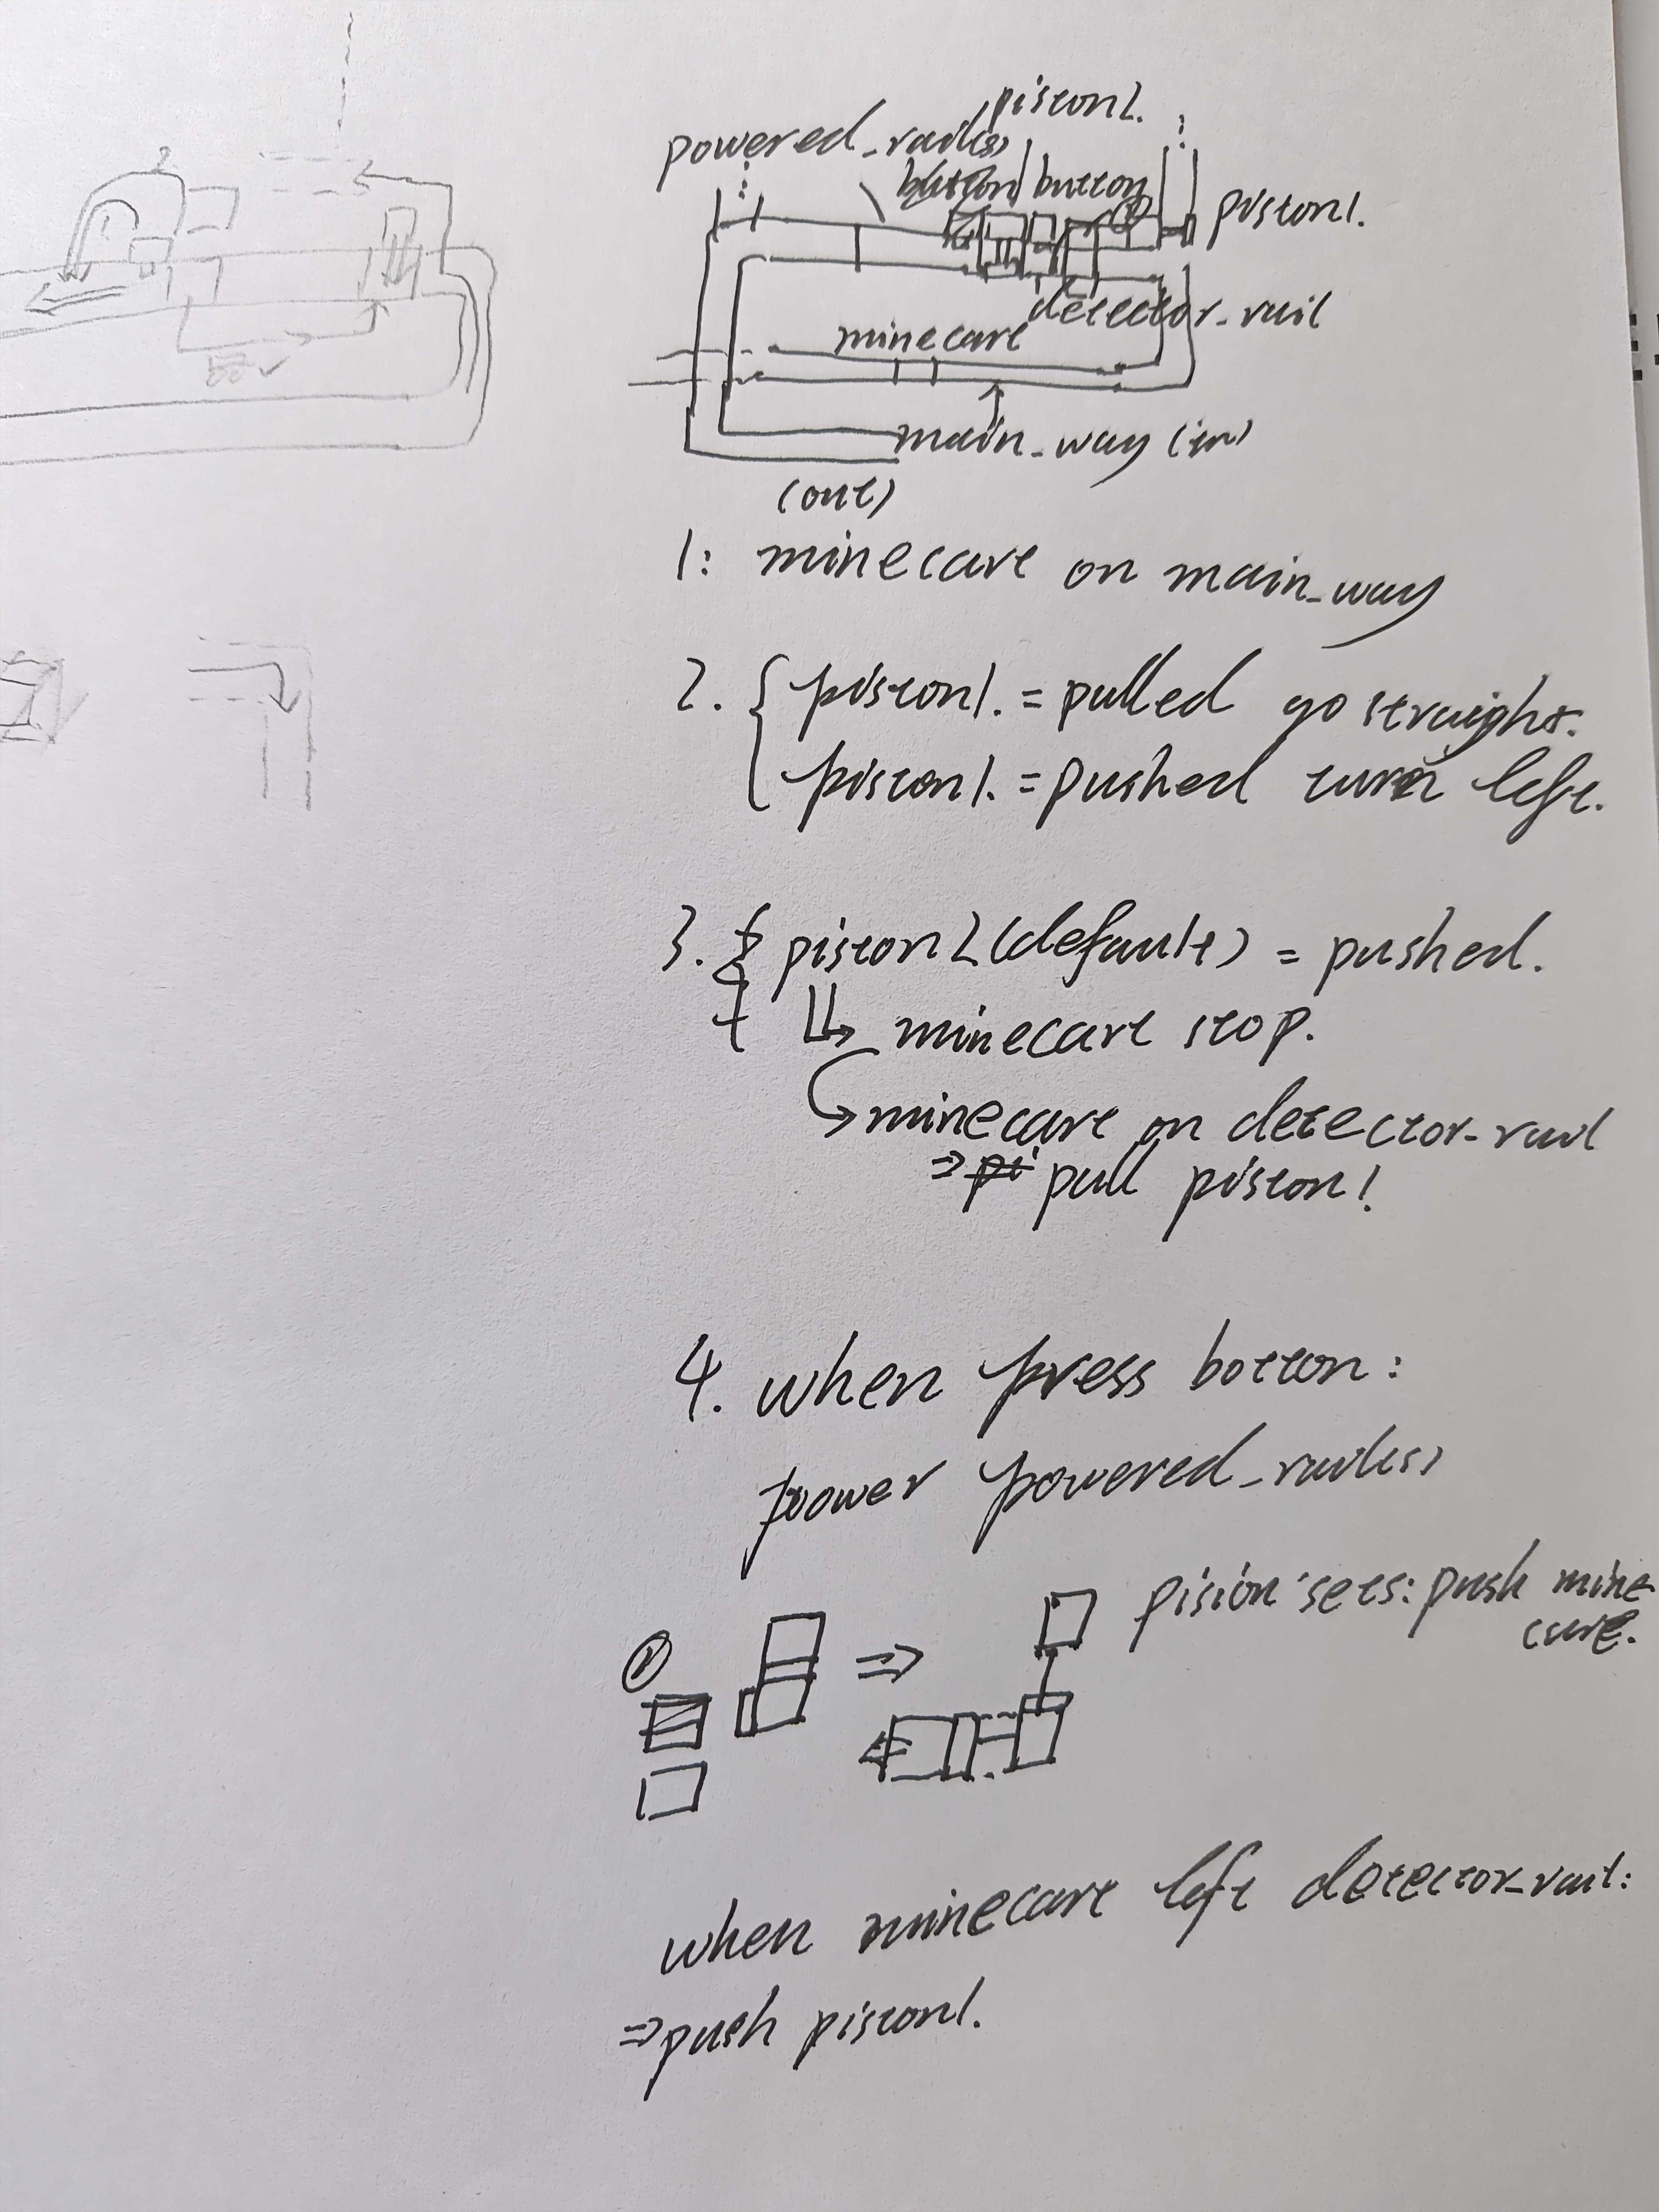 piston2.
powered_rail(s)
button
button
piston1.
detector_rail
minecart
main_way (in)
(out)
1: minecart on main_way
2. { piston1. = pulled go straight.
piston1. = pushed turn left.
3. piston2(default) = pushed.
↳ minecart stop.
↳ minecart on detector_rail
⇒ pull piston1
4. when press botton:
power powered_rail(s)
piston sets: push mine
cart.
⇒
when minecart left detector_rail:
⇒ push piston1.
2